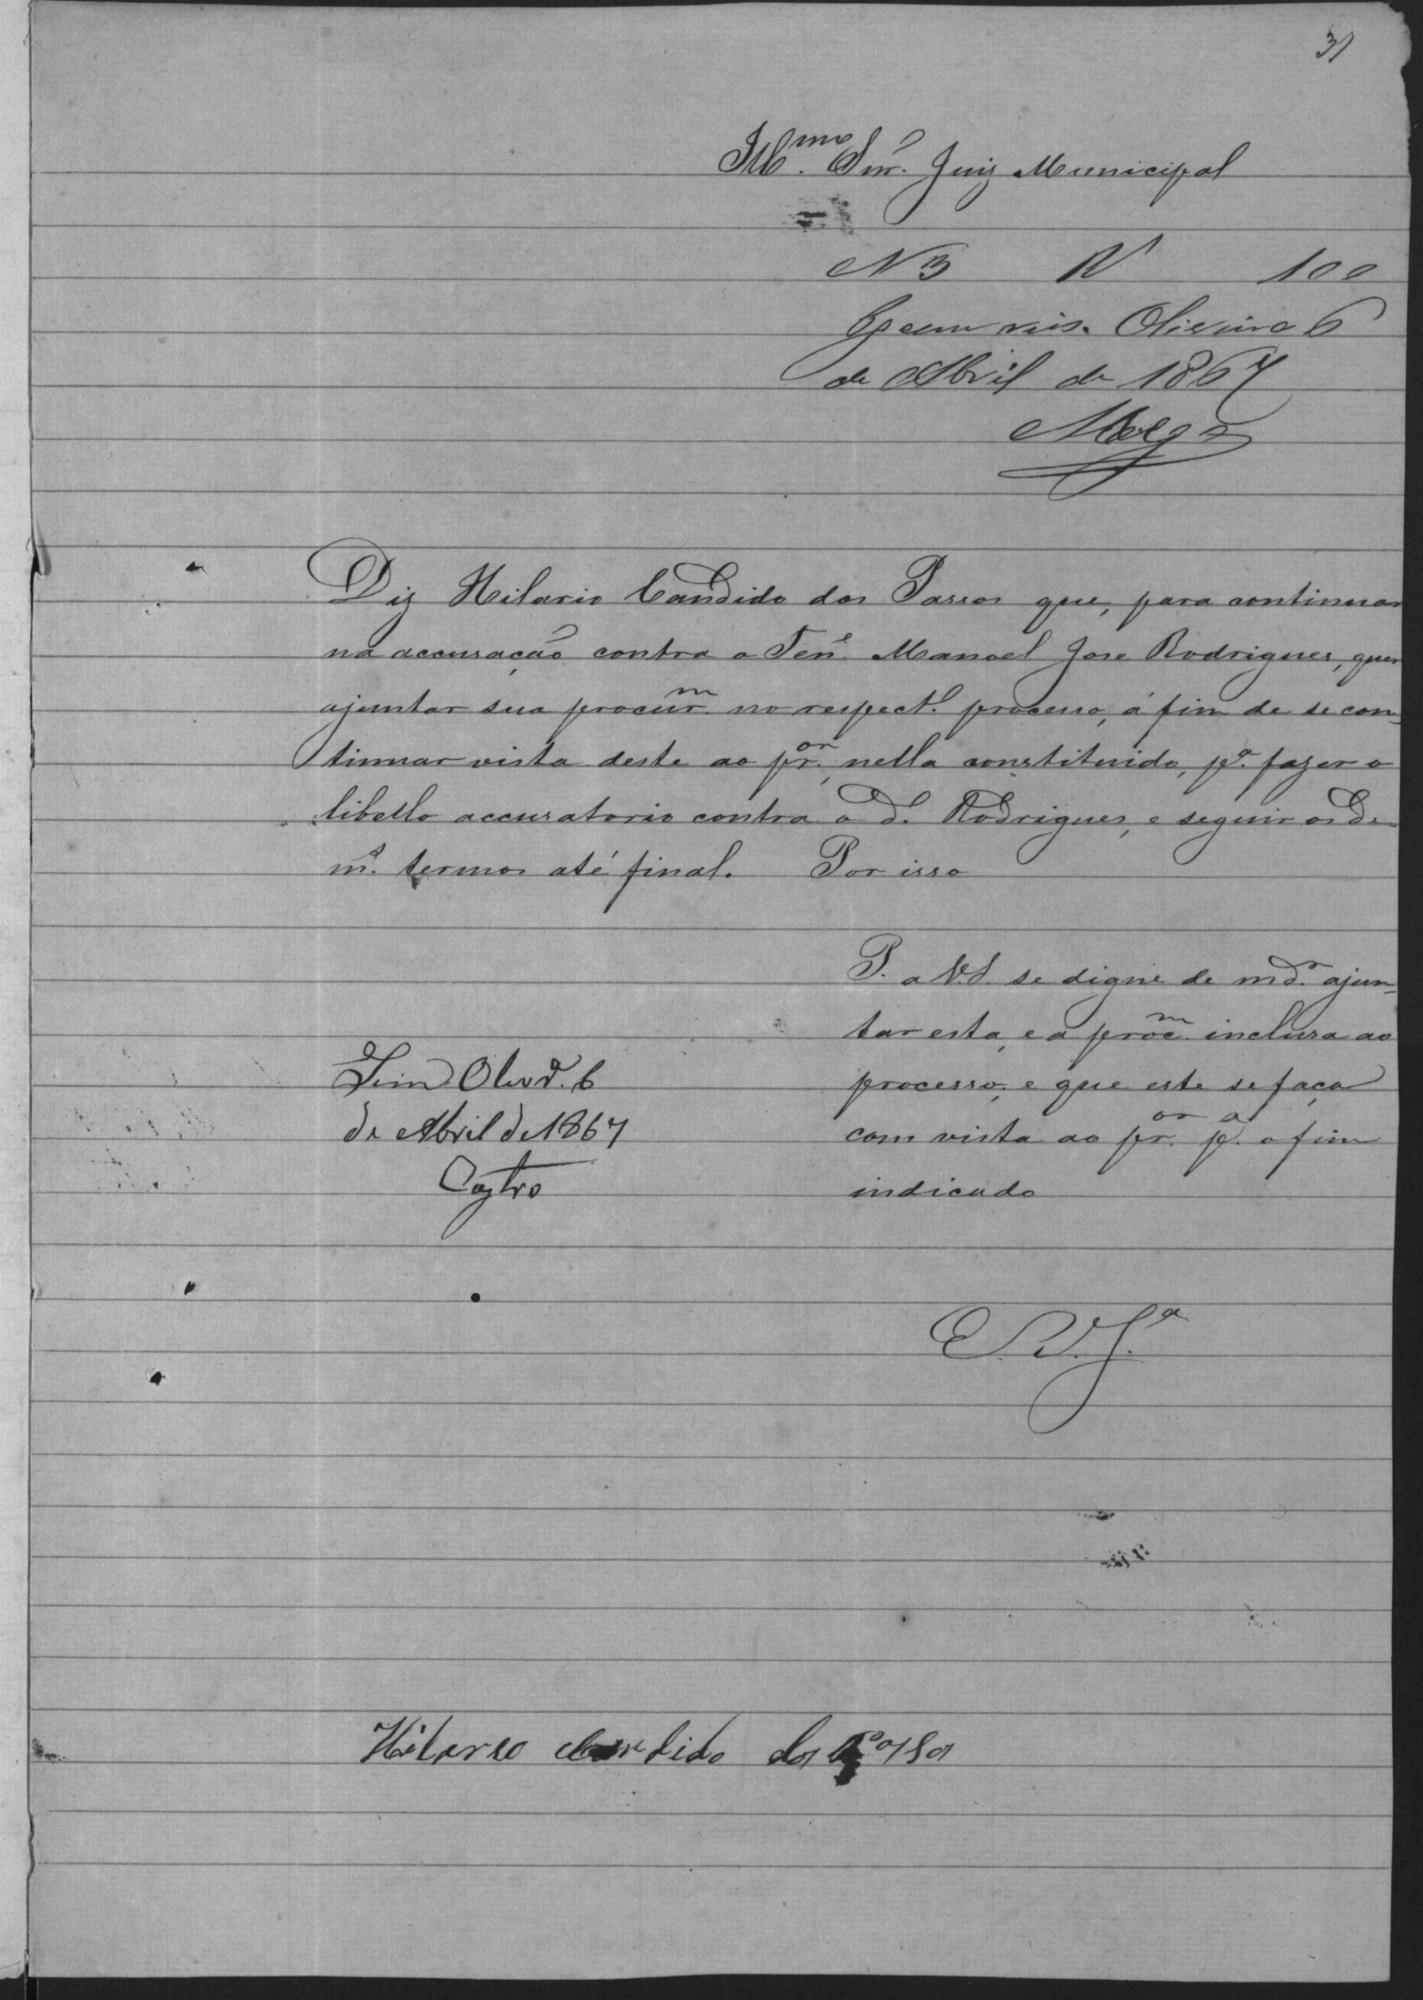 31
Ill.mo Snr. Juiz Municipal
N 3 R 100
de Abril de 1867
Diz Hilario Candido dos Passos que, para continuar
na accusação contra o Ten.e Manoel Jose Rodrigues, quer
ajuntar sua procur.m no respect.o processo, á fim de se con-
tinuar vista deste ao pr.or, nella constituido, p.a fazer o
libello accusatorio contra o d.o Rodrigues, e seguir os de-
m.s termos até final. Por isso
P. a V.S. se digne de md.r ajun-
tar esta, e a proc.m inclusa ao
processo, e que este se faça
com vista ao pr.or p.a o fim
indicado
Sim. Olivr.a 6
de Abril de 1867
Castro
E. R. J.a
Hilario Candido dos Passos